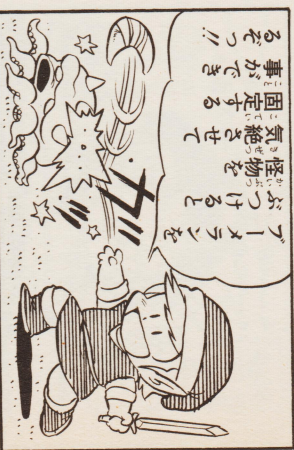 ブーメランを
ぶつけると
怪物を
気絶させて
固定する
事ができ
るぞっ!!
ガッ